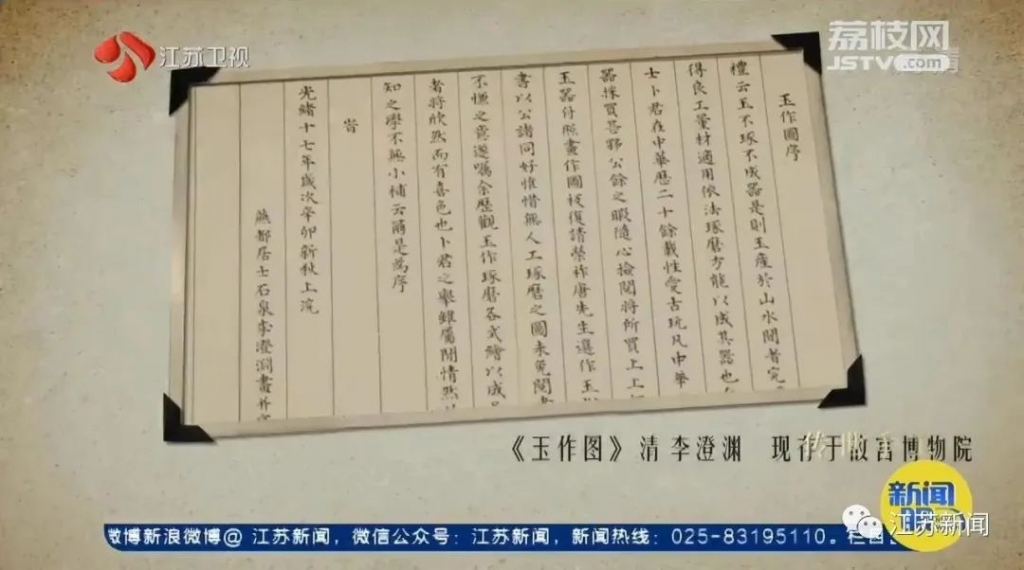 江苏卫视
荔枝网
JSTV.com
玉作圖序
禮云玉不琢不成器是則玉產於山水間者宛
得良工量材適用依法琢磨方能以成其器也
士卜君在中華歷二十餘載性愛古玩凡中華
器採買甚夥公餘之暇隨心檢閱將所買上上
玉器付照畫作圖後復請榮祚唐先生選作玉
書以公諸同好惟惜無人工琢磨之圖未免閱
不慊之意遂囑余歷觀玉作琢磨各式繪以成
者將欣然而有喜色也卜君之舉雖屬閒情然
知之學不無小補云爾是為序
旹
光緒十七年歲次辛卯新秋上浣
燕都居士石泉李澄淵畫并
《玉作图》 清 李澄渊 现存于故宫博物院
新闻
江苏新闻
微博新浪微博@ 江苏新闻，微信公众号：江苏新闻，新闻热线：025-83195110。栏目